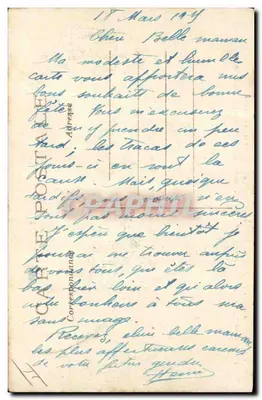 18 Mars 19
Chère Belle maman
Ma modeste et humble
carte vous apportera mes
bons souhaits de bonne
fête. Vous m'excuserez
de m'y prendre un peu
tard, les tracas de ces
jours-ci en sont la
cause. Mais, quoique
tardifs, n'en
sont pas moins sincères
J'espère que bientôt je
pourrai me trouver auprès
de vous tous, qui êtes là
bas si loin et qu'alors
notre bonheur à tous sera
sans nuage.
Recevez, chère belle maman
les plus affectueuses caresses
de votre futur gendre
Henri
CARTE POSTALE
Correspondance
Adresse